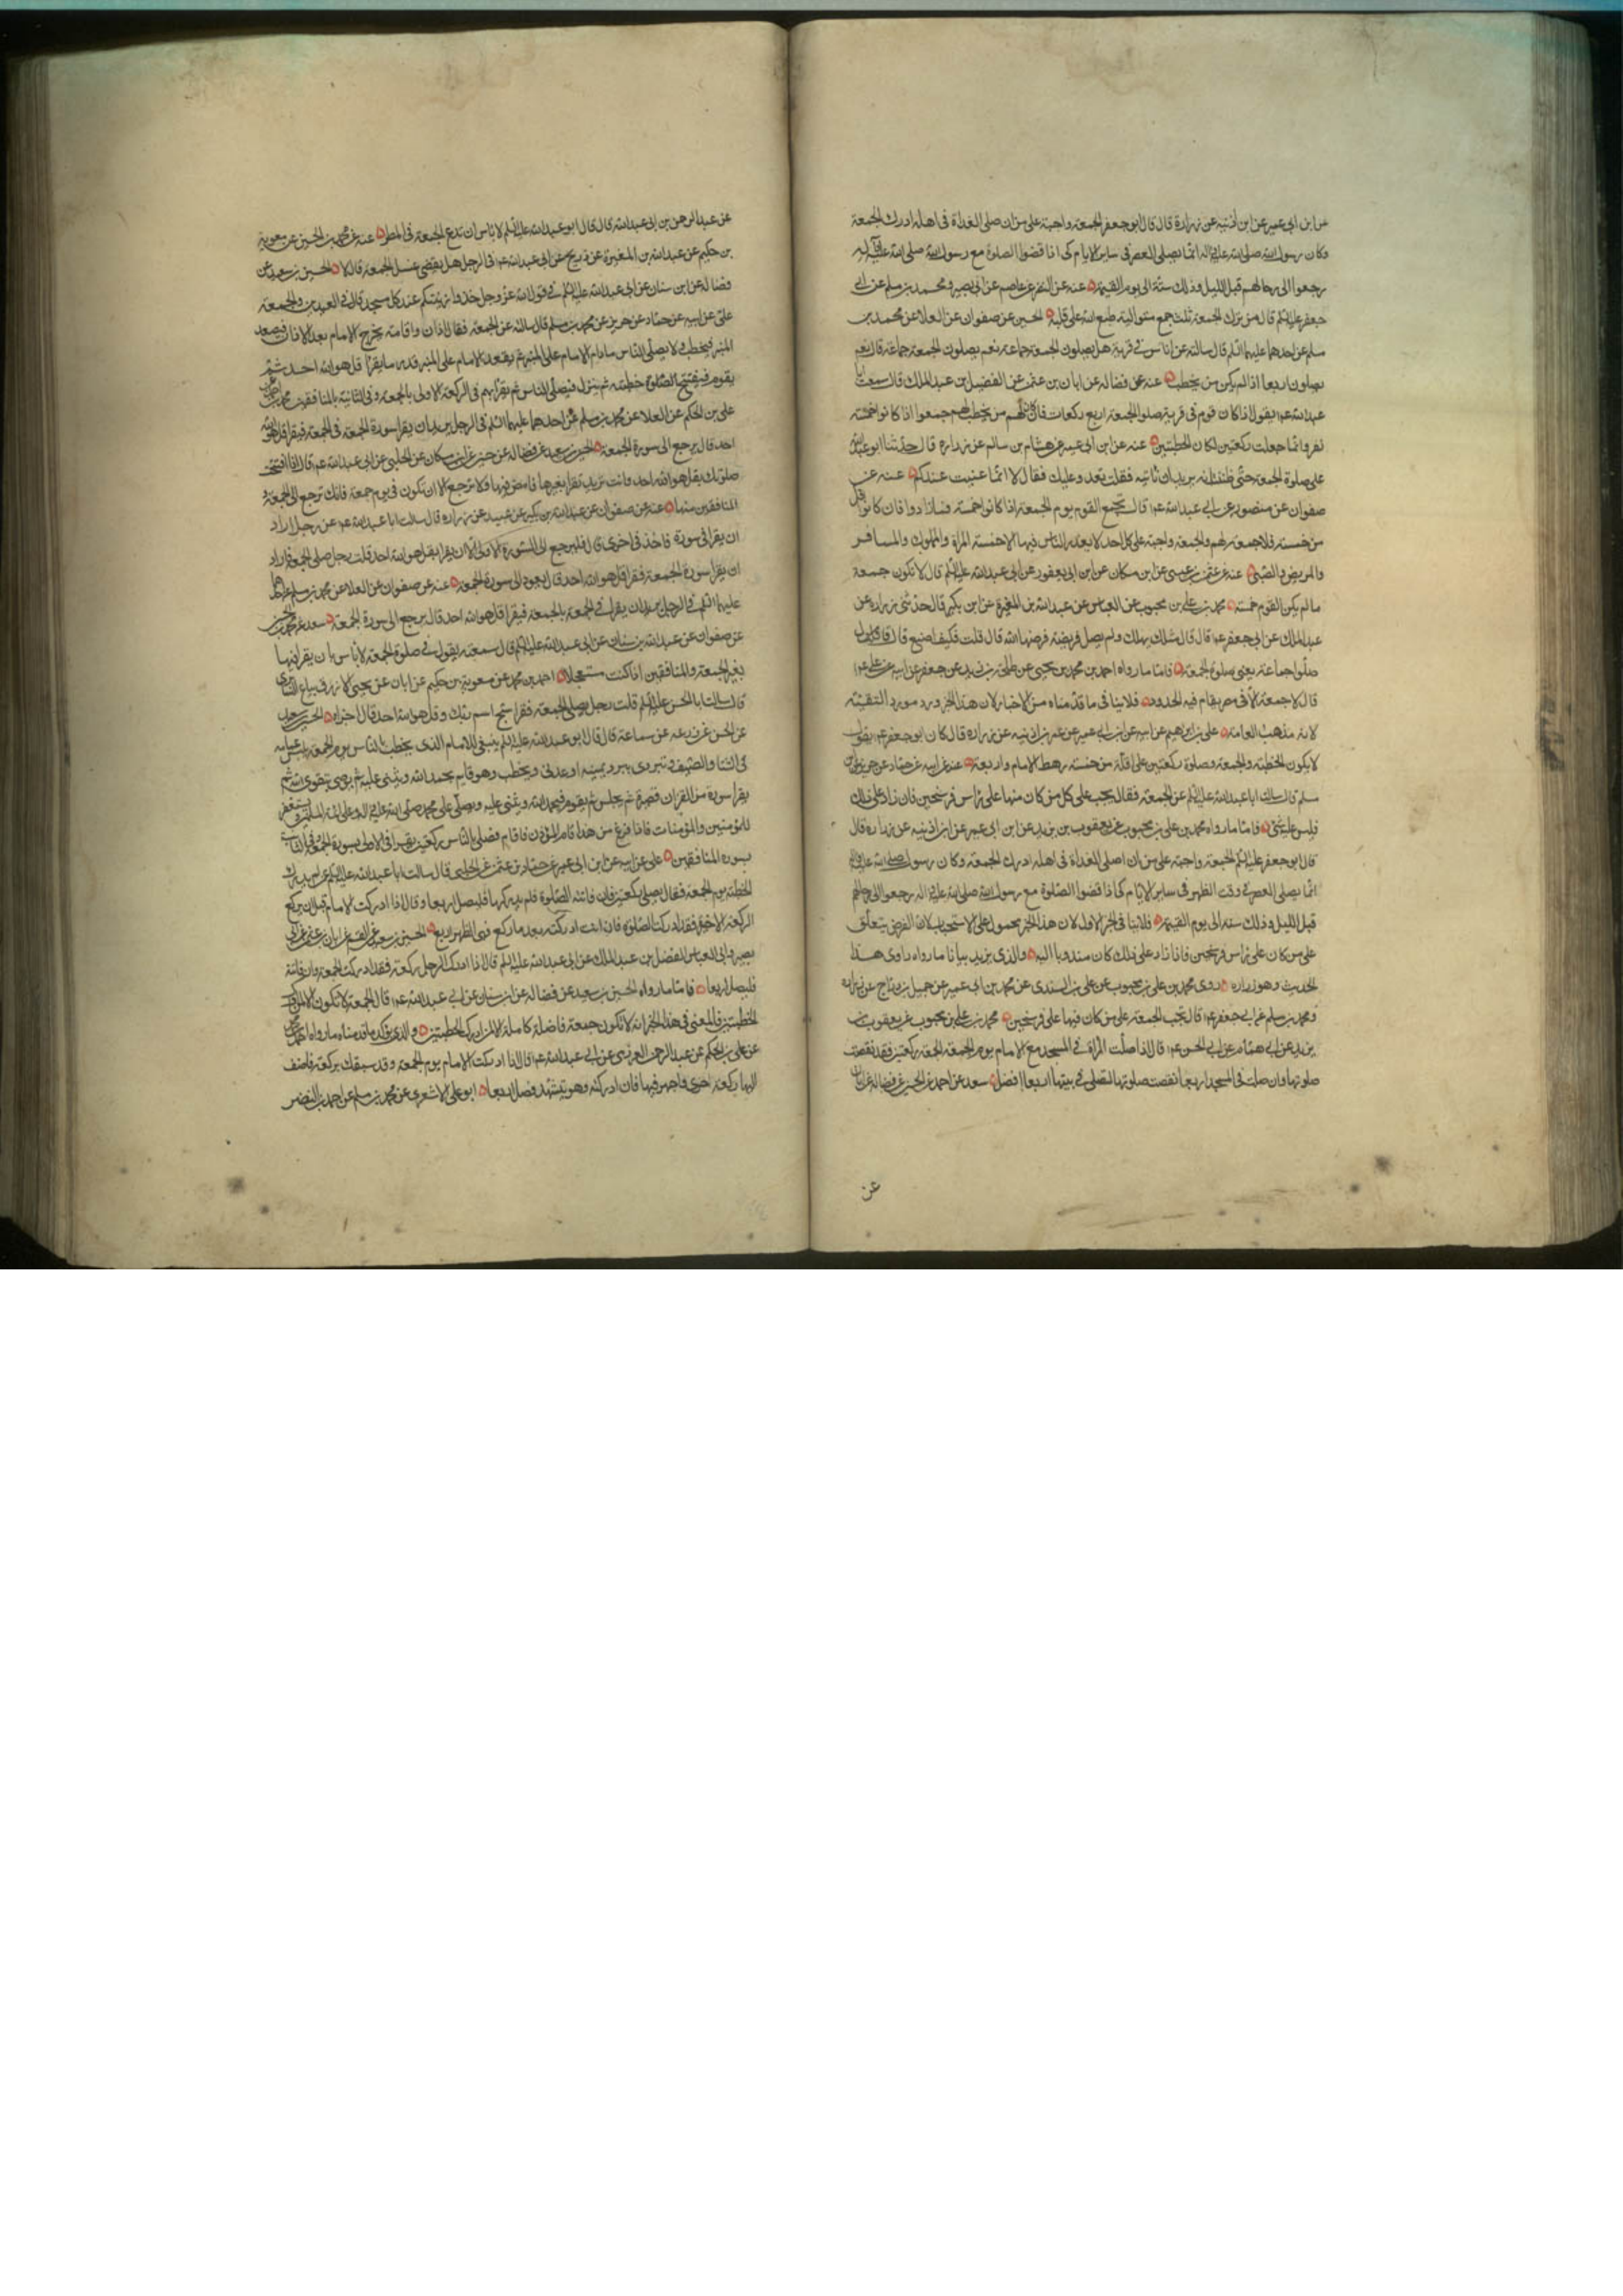 عن ابن ابي عمير عن ابن اذنيه عن زرارة قال قال ابو جعفر الجمعة واجبة على من ان صلى الغداة في اهله ادرك الجمعة
وكان رسول الله صلى الله عليه واله انما يصلى العصر في ساير الايام كى اذا قضوا الصلوة مع رسول الله صلى الله عليه وآله
رجعوا الى رحالهم قبل الليل وذلك سنة الى يوم القيمة عنه عن النضر عن عاصم عن ابى بصير ومحمد بن مسلم عن ابى
جعفر عليه السلم قال من ترك الجمعة ثلث جمع متوالية طبع الله على قلبه الحسين عن صفوان عن العلا عن محمد بن
مسلم عن احدهما عليهما السلم قال سالته عن اناس في قرية هل يصلون الجمعة جماعة نعم يصلون الجمعة جماعة قال نعم
يصلون اربعا اذا لم يكن من يخطب عنه عن فضاله عن ابان بن عثمن عن الفضيل بن عبد الملك قال سمعت ابا
عبد الله عم يقول اذا كان قوم في قرية صلوا الجمعة اربع ركعات فان كان لهم من يخطب لهم جمعوا اذا كانوا خمسة
نفر وانما جعلت ركعتين لمكان الخطبتين عنه عن ابن ابى عمير عن هشام بن سالم عن زراره قال حثنا ابو عبد الله
على صلوة الجمعة حتى ظننت انه يريد ان ناتيه فقلت نغدو عليك فقال لا انما عنيت عندكم عنه عن
صفوان عن منصور عن ابي عبد الله عم قال يجمع القوم يوم الجمعة اذا كانوا خمسة فما زادوا فان كانوا اقل
من خمسة فلا جمعة لهم والجمعة واجبة على كل احد لا يعذر الناس فيها الا خمسة المراة والمملوك والمسافر
والمريض والصبى عنه عن عثمن بن عيسى عن ابن مسكان عن ابن ابى يعفور عن ابى عبد الله عليه السلم قال لا تكون جمعة
ما لم يكن القوم خمسة محمد بن على بن محبوب عن العباس عن عبد الله بن المغيرة عن ابن بكير قال حدثنى زراره عن
عبد الملك عن ابى جعفر عم قال قال مثلك يهلك ولم يصل فريضة فرضها الله قال قلت فكيف اصنع قال قال
صلوا جماعة يعنى صلوة الجمعة فاما ما رواه احمد بن محمد بن يحيى عن طلحة بن زيد عن جعفر عن ابيه عن على عم
قال لا جمعة الا في مصر يقام فيه الحدود فلا ينافى ما قدمناه من الاخبار لان هذا الخبر ورد مورد التقية
لانه مذهب العامة على بن ابراهيم عن ابيه عن ابن ابي عمير عن عمر بن اذنيه عن زراره قال كان ابو جعفر عم يقول
لا يكون الخطبة والجمعة وصلوة ركعتين على اقل من خمسة رهط الامام واربعة عنه عن ابيه عن حماد عن حريز عن
مسلم قال سالت ابا عبد الله عليه السلم عن الجمعة فقال يجب على كل من كان منها على راس فرسخين فان زاد على ذلك
فليس عليه شئ فاما ما رواه محمد بن على بن محبوب عن يعقوب بن يزيد عن ابن ابى عمير عن ابن اذنيه عن زراره قال
قال ابو جعفر عليه السلم الجمعة واجبة على من ان صلى الغداة في اهله ادرك الجمعة وكان رسول صلى الله عليه واله
انما يصلى العصر في وقت الظهر في ساير الايام كى اذا قضوا الصلوة مع رسول الله صلى الله عليه واله رجعوا الى رحالهم
قبل الليل وذلك سنة الى يوم القيمة فلا ينافى الخبر الاول لان هذا الخبر محمول على الاستحباب لان الفرض يتعلق
على من كان على راس فرسخين فاذا زاد على ذلك كان مندوبا اليه والذى يزيد بيانا ما رواه راوى هذا
الحديث وهو زراره روى محمد بن على بن محبوب عن على بن السندى عن محمد بن ابى عمير عن جميل بن دراج عن زراره
ومحمد بن مسلم عن ابي جعفر عم قال تجب الجمعة على من كان فيها على فرسخين محمد بن على بن محبوب عن يعقوب بن
يزيد عن ابي همام عن ابي الحسن عم قال اذا صلت المراة في المسجد مع الامام يوم الجمعة الجمعة ركعتين فقد نقصت
صلوتها وان صلت في المسجد اربعا نقصت صلوتها لتصلى في بيتها اربعا افضل سعد عن احمد بن الحسن عن فضاله عن ابان
عن
عن عبد الرحمن بن ابى عبد الله قال قال ابو عبد الله عليه السلم لا باس ان تدع الجمعة في المطر عنه عن محمد بن الحسين عن معوية
بن حكيم عن عبد الله بن المغيرة عن ذريح عن ابى عبد الله عم في الرجل هل يقضى غسل الجمعة قال لا الحسين بن سعيد عن
فضاله عن ابن سنان عن ابى عبد الله عليه السلم في قول الله عز وجل خذوا زينتكم عند كل مسجد قال في العيدين والجمعة
على عن ابيه عن حماد عن حريز عن محمد بن مسلم قال سالته عن الجمعة فقال اذان واقامة يخرج الامام بعد الاذان فيصعد
المنبر فيخطب ولا يصلى الناس مادام الامام على المنبر ثم يقعد الامام على المنبر قدر ما يقرا قل هو الله احد ثم
يقوم فيفتتح خطبته ثم ينزل فيصلى الناس ثم يقرا بهم في الركعة الاولى بالجمعة وفى الثانية بالمنافقين
على بن الحكم عن العلا عن محمد بن مسلم عن احدهما عليهما السلم في الرجل يريد ان يقرا سورة الجمعة في الجمعة فيقرا قل هو الله
احد قال يرجع الى سورة الجمعة الحسين بن سعيد عن فضاله عن حسين عن ابن مسكان عن الحلبى عن ابى عبد الله عم قال اذا افتتحت
صلوتك بقل هو الله احد وانت تريد تقرا بغيرها فامض فيها ولا ترجع الا ان تكون في يوم جمعة فانك ترجع الى الجمعة و
المنافقين منها عنه عن صفوان عن عبد الله بن بكير عن عبيد عن زراره قال سالت ابا عبد الله عم عن رجل اراد
ان يقرا في سورة فاخذ في اخرى قال فليرجع الى السورة الاولى الا ان يقرا بقل هو الله احد قلت رجل صلى الجمعة فاراد
ان يقرا سورة الجمعة فقرا قل هو الله احد قال يعود الى سورة الجمعة عنه عن صفوان عن العلا عن محمد بن مسلم عن احدهما
عليهما السلم في الرجل يريد ان يقرا في الجمعة بالجمعة فيقرا قل هو الله احد قال يرجع الى سورة الجمعة سعد عن محمد بن الحسين
عن صفوان عن عبد الله بن سنان عن ابى عبد الله عليه السلم قال سمعته يقول في صلوة الجمعة لا باس بان يقرا فيها
بغير الجمعة والمنافقين اذا كنت مستعجلا احمد بن محمد عن معوية بن حكيم عن ابان عن يحيى الازرق بياع السابرى
قال سالت ابا الحسن عليه السلم قلت رجل يصلى الجمعة فقرا سبح اسم ربك وقل هو الله احد قال اجزاه الحسين بن سعيد
عن الحسن عن زرعه عن سماعة قال قال ابو عبد الله عليه السلم ينبغى للامام الذى يخطب بالناس يوم الجمعة ان يلبس عمامة
في الشتا والصيف ويتردى ببرد يمنية او عدنى ويخطب وهو قايم يحمد الله ويثنى عليه ثم يوصى بتقوى الله ثم
يقرا سورة من القران قصيرة ثم يجلس ثم يقوم فيحمد الله ويثنى عليه ويصلى على محمد صلى الله عليه واله وعلى ائمة المسلمين ويستغفر
للمؤمنين والمؤمنات فاذا فرغ من هذا قام المؤذن فاقام فصلى بالناس ركعتين يقرا في الاولى بسورة الجمعة وفى الثانية
بسورة المنافقين على عن ابيه عن ابن ابى عمير عن حماد بن عثمن عن الحلبى قال سالت ابا عبد الله عليه السلم عمن لم يدرك
الخطبة يوم الجمعة فقال يصلى ركعتين فان فاتته الصلوة فلم يدركها فليصل اربعا وقال اذا ادركت الامام قبل ان يركع
الركعة الاخيرة فقد ادركت الصلوة فان انت ادركته بعد ما ركع فهى الظهر اربع الحسين بن سعيد عن القسم عن ابان بن عثمن عن ابى
بصير وابى العباس الفضل بن عبد الملك عن ابى عبد الله عليه السلم قال اذا ادرك الرجل ركعة فقد ادرك الجمعة وان فاتته
فليصل اربعا فاما ما رواه الحسين بن سعيد عن فضاله عن ابن سنان عن ابى عبد الله عم قال الجمعة لا تكون الا لمن ادرك
الخطبتين فالمعنى في هذا الخبر انه لا تكون جمعة فاضلة كاملة الا لمن ادرك الخطبتين والذى يؤكد ما قدمناه ما رواه محمد
عن على بن الحكم عن عبد الرحمن العرزمى عن ابى عبد الله عم قال اذا ادركت الامام يوم الجمعة وقد سبقك بركعة فاضف
اليها ركعة اخرى واجهر فيها فان ادركته وهو يتشهد فصل اربعا ابو على الاشعرى عن محمد بن سالم عن احمد بن النضر